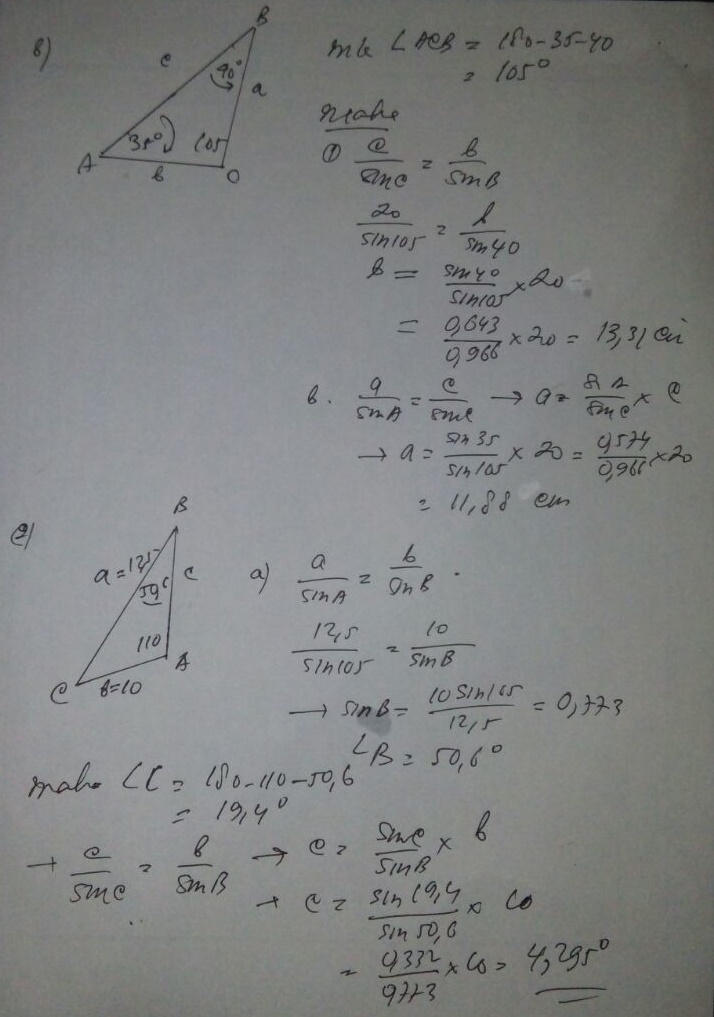 8)
B
c
40°
a
35°
105
A
b
C
mk ∠ACB = 180-35-40
= 105°
maka
① c/sinC = b/sinB
20/sin105 = b/sin40
b = sin40/sin105 × 20
= 0,643/0,966 × 20 = 13,31 cm
b. a/sinA = c/sinC → a = sinA/sinC × c
→ a = sin35/sin105 × 20 = 0,574/0,966 × 20
= 11,88 cm
B
a = 12,5
c
110
A
C
b=10
a) a/sinA = b/sinB
12,5/sin105 = 10/sinB
→ sinB = 10 sin105/12,5 = 0,773
∠B = 50,6°
maka ∠C = 180-110-50,6
= 19,4°
→ c/sinC = b/sinB → c = sinC/sinB × b
→ c = sin19,4/sin50,6 × 10
= 0,332/0,773 × 10 = 4,295°